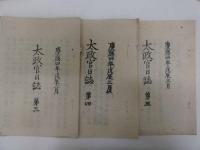 慶應四年戊辰二月
太政官日誌
第五
慶應四年戊辰二月
太政官日誌
第四
慶應四年戊辰二月
太政官日誌
第三